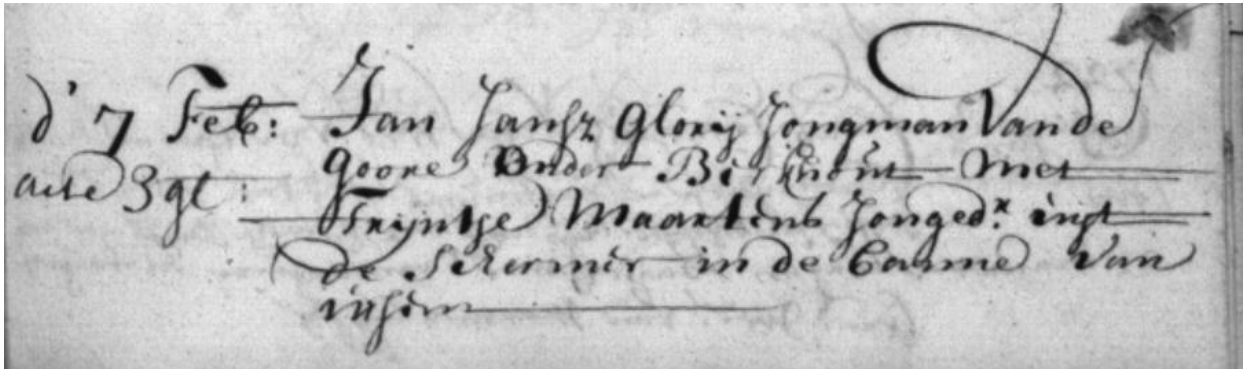 d' 7 Feb: Jan Jansz Glorij Jongman Van de
acte 3 gl: Goore Onder Berkhout Met
Trijntje Maartens Jonged.r uijt
de Schermer in de Banne Van